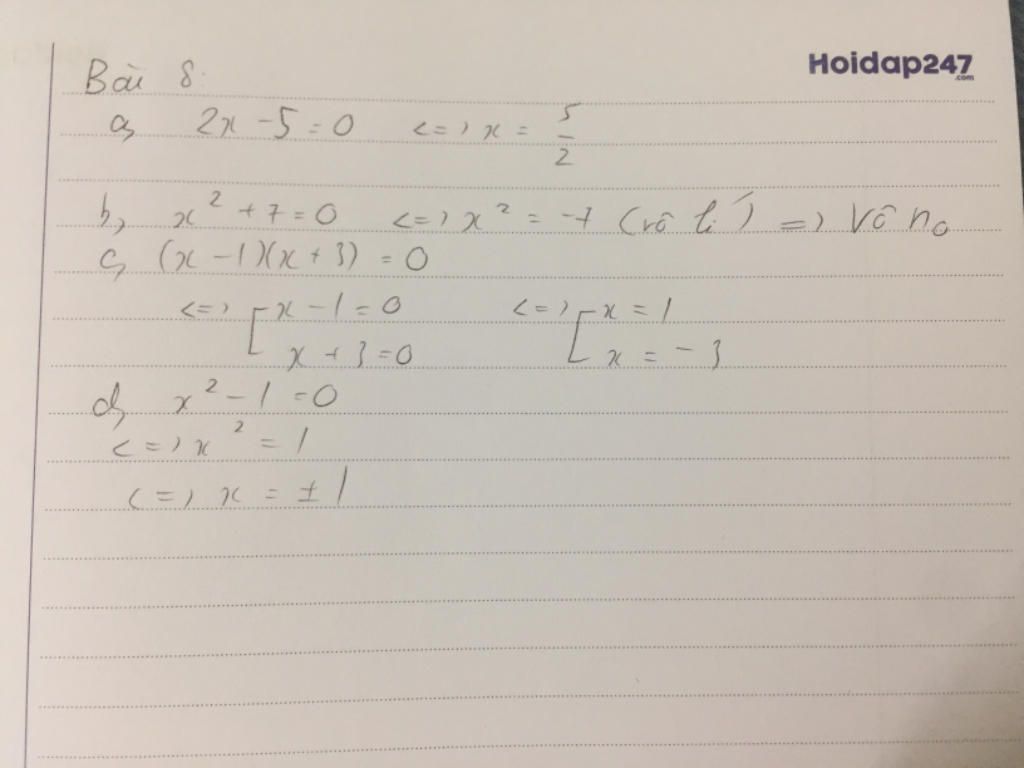 Hoidap247
.com
Bài 8:
a, 2x - 5 = 0 <=> x = 5/2
b, x² + 7 = 0 <=> x² = -7 (vô lí) => Vô no
c, (x - 1)(x + 3) = 0
<=> [ x - 1 = 0 <=> [ x = 1
x + 3 = 0 x = -3
d, x² - 1 = 0
<=> x² = 1
<=> x = ±1